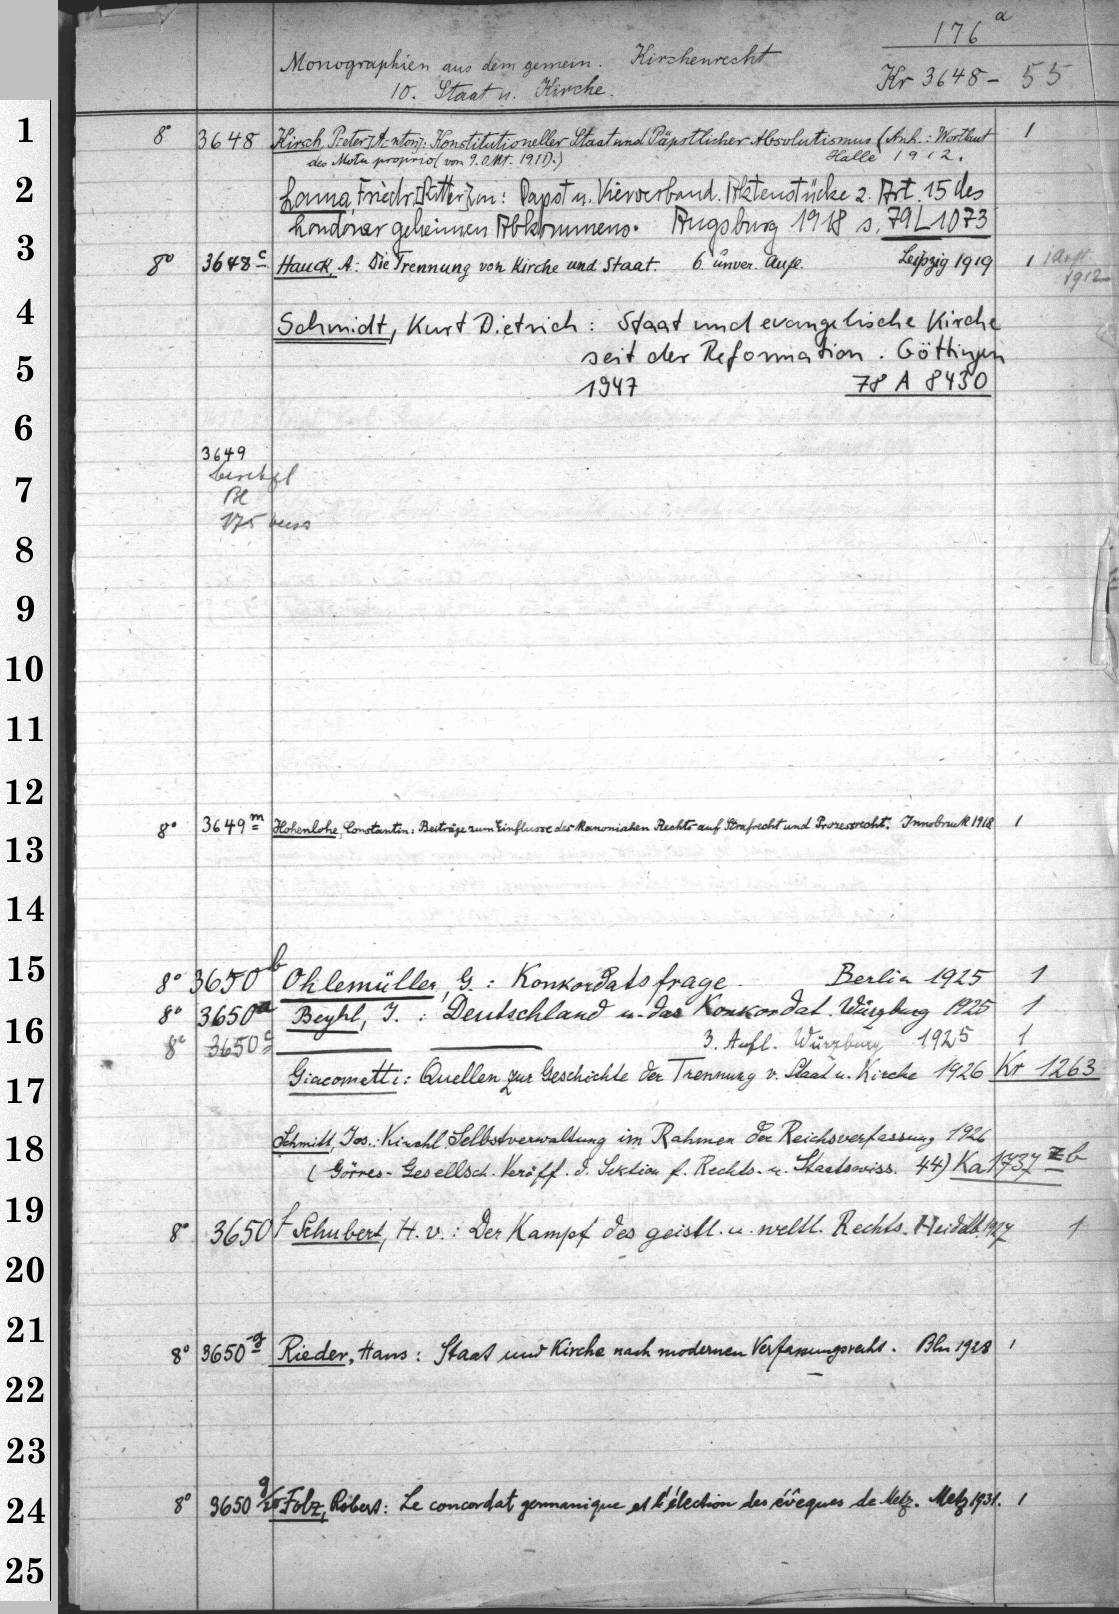 176 a
Monographien aus dem gemein. Kirchenrecht
Kr 3648 - 55
10. Staat u. Kirche.
1
8° 3648 Hirsch, P[eter] A[nton]: Konstitutioneller Staat und Päpstlicher Absolutismus (Anh.: Wortlaut 1
des Motu proprio (von 9. Okt. 1911).) Halle 1912.
2
Lama, Friedr. [Ritter] v.: Papst u. Vierverband. Aktenstücke z. Art. 15 des
Londoner geheimen Abkommens. Augsburg 1918 s. 79 L 1073
3
8° 3648 c Hauck, A.: Die Trennung von Kirche und Staat. 6. unver. Aufl. Leipzig 1919 1 1 Aufl.
1912
4
Schmidt, Kurt Dietrich: Staat und evangelische Kirche
seit der Reformation. Göttingen
5
1947 78 A 8430
6
3649
7
Bl
175
8
9
10
11
12
8° 3649 m Hohenlohe, Constantin: Beiträge zum Einflusse des kanonischen Rechts auf Strafrecht und Prozessrecht. Innsbruck 1918 1
13
14
15
8° 3650 b Ohlemüller, G.: Konkordatsfrage. Berlin 1925 1
8° 3650 a Beyhl, J.: Deutschland u. das Konkordat. Würzburg 1925 1
16
8° 3650 c 3. Aufl. Würzburg 1925 1
17
Giacometti: Quellen zur Geschichte der Trennung v. Staat u. Kirche 1926 Kr 1263
18
Schmitt, Jos.: Kirchl. Selbstverwaltung im Rahmen der Reichsverfassung 1926
(Görres-Gesellsch. Veröff. d. Sektion f. Rechts- u. Staatswiss. 44) Ka 1737 zb
19
8° 3650 f Schubert, H. v.: Der Kampf des geistl. u. weltl. Rechts. Heidelb. 1927 1
20
21
8° 3650 g Rieder, Hans: Staat und Kirche nach modernen Verfassungsrecht. Bln 1928 1
22
23
24
8° 3650 Folz, Robert: Le concordat germanique et l'élection des évêques de Metz. Metz 1931. 1
25